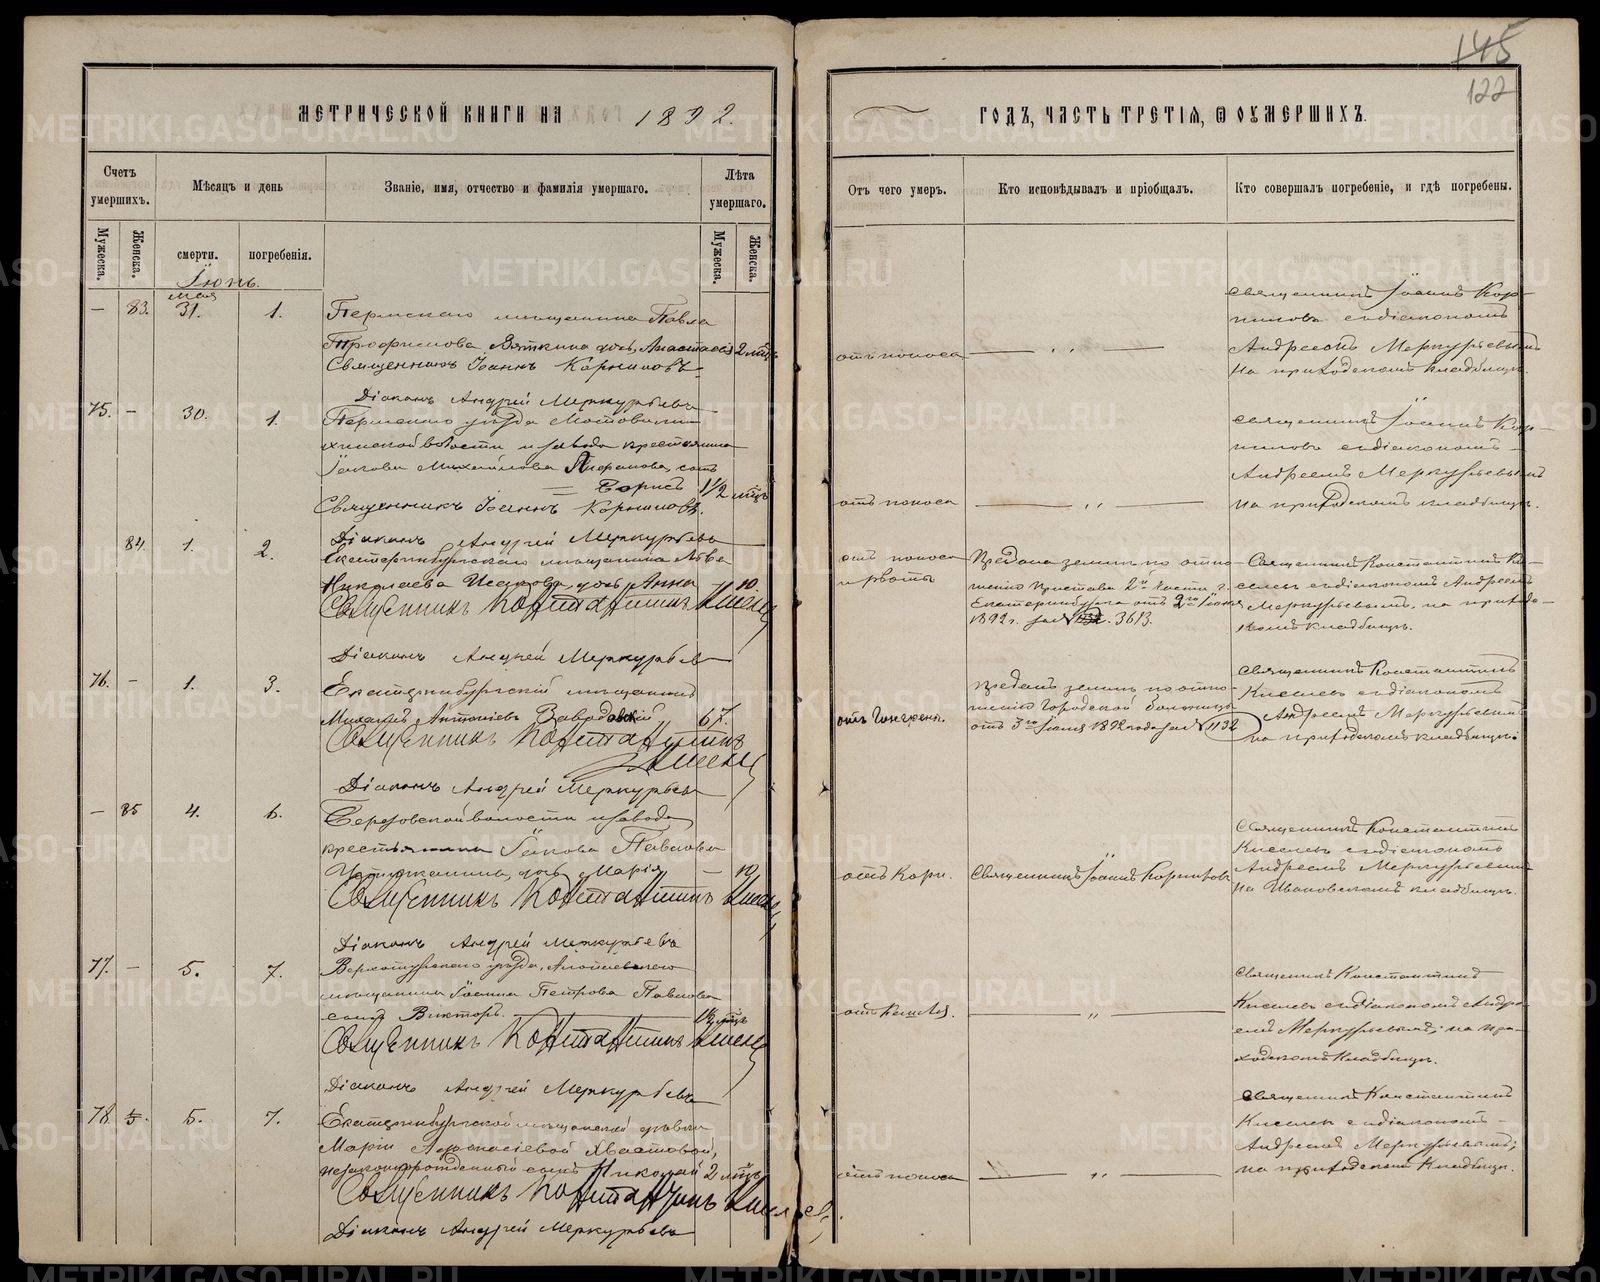 145
122
МЕТРИЧЕСКОЙ КНИГИ НА 1892.
ГОДЪ, ЧАСТЬ ТРЕТІЯ, Ѿ ОУМЕРШИХЪ.
Счетъ умершихъ.
Мѣсяцъ и день
Званіе, имя, отчество и фамилія умершаго.
Лѣта умершаго.
Отъ чего умеръ.
Кто исповѣдывалъ и пріобщалъ.
Кто совершалъ погребеніе, и гдѣ погребены.
Мужеска.
Женска.
смерти.
погребенія.
Мужеска.
Женска.
Іюнь.
мая
— 83. 31. 1.
Пермскаго мѣщанина Павла
Трофимова Вяткина дочь Анастасія 2 мѣц
Священникъ Іоаннъ Корниловъ
Діаконъ Андрей Меркурьевъ
отъ поноса
Священникъ Іоаннъ Кор-
ниловъ съ діакономъ
Андреемъ Меркурьевымъ
На приходскомъ кладбищѣ.
75. — 30. 1.
Пермскаго уѣзда Мотовили-
хинской волости и завода крестьянина
Іакова Михайлова сынъ
Борисъ 1 1/2 мѣц
Священникъ Іоаннъ Корниловъ.
Діаконъ Андрей Меркурьевъ
отъ поноса
Священникъ Іоаннъ Кор-
ниловъ съ діакономъ
Андреемъ Меркурьевымъ
на приходскомъ кладбищѣ.
84. 1. 2.
Екатеринбургскаго мѣщанина Льва
Николаева Исакова дочь Анна
Священникъ Константинъ Киселевъ
Діаконъ Андрей Меркурьевъ
отъ поноса
и рвоты
Предана землѣ по отно-
шенію Пристава 2й части г.
Екатеринбурга отъ 2го Іюня
1892 г. за № 3613.
Священникъ Константинъ Ки-
селевъ съ діакономъ Андреемъ
Меркурьевымъ, на приход-
скомъ кладбищѣ.
76. — 1. 3.
Екатеринбургскій мѣщанинъ
Михаилъ Антоніевъ 67.
Священникъ Константинъ
Киселевъ
Діаконъ Андрей Меркурьевъ
Преданъ землѣ по отно-
шенію Городской больницы
отъ 3го Іюня 1892 года за № 1132
Священникъ Константинъ
Киселевъ съ діакономъ
Андреемъ Меркурьевымъ
на приходскомъ кладбищѣ.
— 85 4. 6.
Березовской волости и завода
крестьянина Іакова Павлова
дочь Марія —
Священникъ Константинъ Киселевъ
Діаконъ Андрей Меркурьевъ
отъ кори.
Священникъ Іоаннъ Корниловъ
Священникъ Константинъ
Киселевъ съ діакономъ
Андреемъ Меркурьевымъ
на Ивановскомъ кладбищѣ.
77. — 5. 7.
Верхотурскаго уѣзда, Алапаевскаго
мѣщанина Іоанна Петрова Павлова
сынъ Викторъ.
Священникъ Константинъ Киселевъ
Діаконъ Андрей Меркурьевъ
отъ кашля.
Священникъ Константинъ
Киселевъ съ діакономъ Андре-
емъ Меркурьевымъ, на при-
ходскомъ кладбищѣ.
78. 5. 7.
Екатеринбургской мѣщанской дѣвицы
Маріи Аѳанасіевой Хвастовой,
незаконнорожденный сынъ Николай 2 мѣц
Священникъ Константинъ Киселевъ.
Діаконъ Андрей Меркурьевъ
отъ поноса
Священникъ Константинъ
Киселевъ съ діакономъ
Андреемъ Меркурьевымъ,
на приходскомъ кладбищѣ.
METRIKI.GASO-URAL.RU